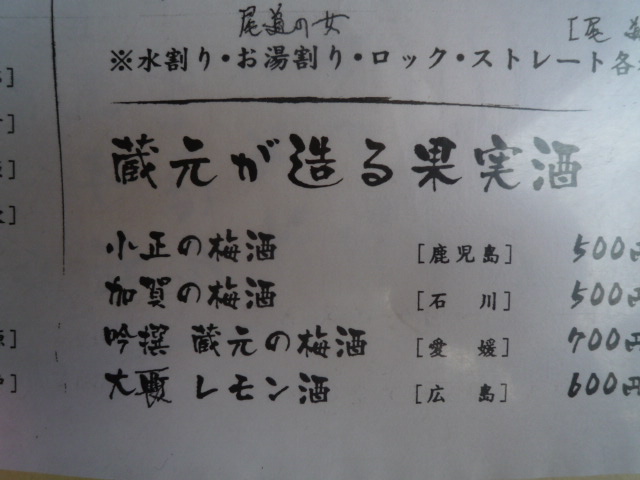 尾道の女
[尾道
※水割り・お湯割り・ロック・ストレート各
蔵元が造る果実酒
小正の梅酒 [鹿児島] 500円
加賀の梅酒 [石 川] 500円
吟撰 蔵元の梅酒 [愛 媛] 700円
レモン酒 [広 島] 600円